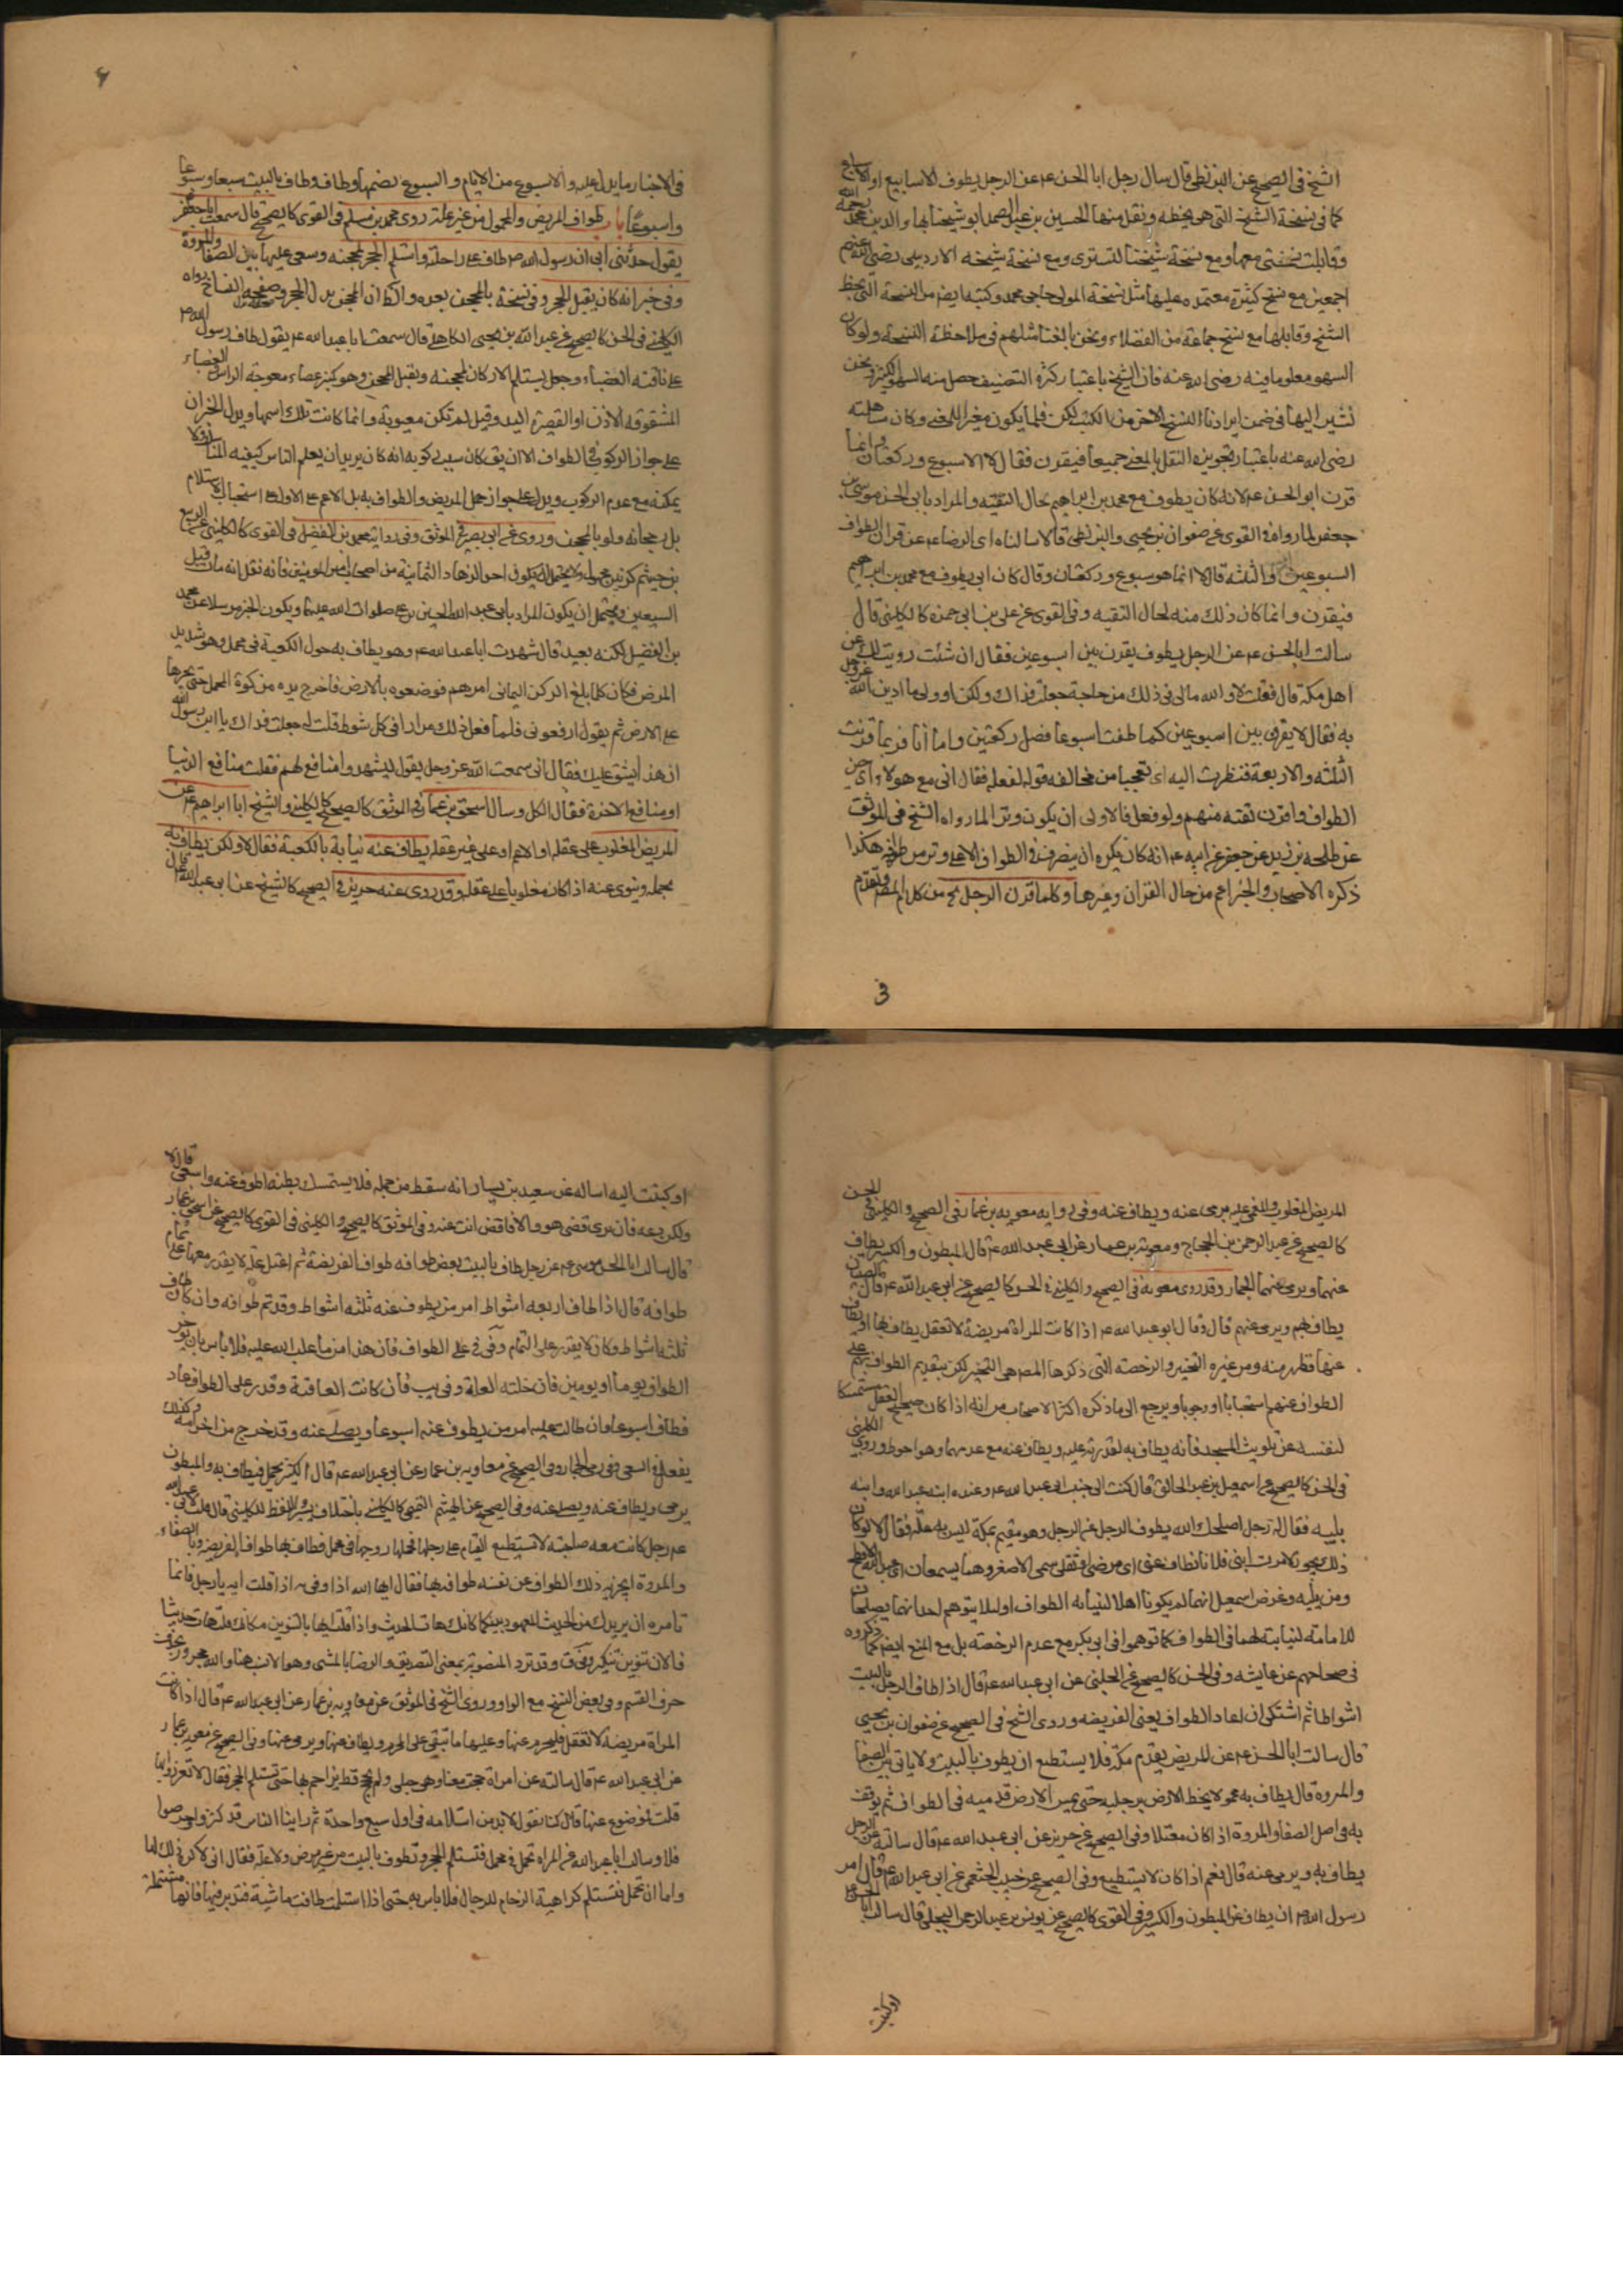 الشيخ في الصحيح عن البزنطي قال سال رجل ابا الحسن ع عن الرجل يطوف الاسابيع
كما في نسخة الشيخ التي هو بخطه ونقل منها الحسين بن عبد الصمد ابو شيخنا بهاء الدين محمد رحمه الله
وقابلت نسختي معها ومع نسخة شيخنا التستري ومع نسخة شيخه الاردبيلي رضي الله عنهم
اجمعين مع نسخ كثيرة معتمدة عليها مثل نسخة المولى حاجي محمد وكتبه ايضا من النسخة التي بخط
الشيخ وقابلها مع نسخ جماعة من الفضلاء ونحن بالغنا مثلهم في ملاحظة النسخة ولو كان
السهو معلوما منه رضي الله عنه فان الشيخ باعتبار كثرة التصنيف حصل منه السهو الكثير ونحن
نشير اليها في ضمن ايرادنا النسخ الاخر من الكتب لكن قلما يكون مغير المعنى وكان مساهلته
رضي الله عنه باعتبار تجويزه النقل بالمعنى جميعا فيقرن فقال لا الا اسبوع وركعتان وانما
قرن ابو الحسن ع لانه كان يطوف مع محمد بن ابراهيم لحال التقية والمراد بابي الحسن موسى بن
جعفر لما رواه في القوى عن صفوان بن يحيى والبزنطي قالا سالناه اي الرضا ع عن قران الطواف
السبوعين والثلثة قال لا انما هو سبوع وركعتان وقال كان ابي يطوف مع محمد بن ابراهيم
فيقرن وانما كان ذلك منه لحال التقية وفي القوى عن علي بن ابي حمزة كالكليني قال
سالت ابا الحسن ع عن الرجل يطوف يقرن بين اسبوعين فقال ان شئت رويت لك عن
اهل مكة قال فقلت لا والله ما لي في ذلك من حاجة جعلت فداك ولكن ارو لي ما ادين الله عز وجل
به فقال لا يقرن بين اسبوعين كلما طفت اسبوعا فصل ركعتين واما انا فربما قرنت
الثلثة والاربعة فنظرت اليه اي تعجبا من مخالفة قوله لفعله فقال اني مع هولاء اي
الطواف واقرن تقية منهم ولو فعل فالاولى ان يكون وترا لما رواه الشيخ في الموثق
عن طلحة بن زيد عن جعفر عن ابيه ع انه كان يكره ان ينصرف في الطواف الا على وتر من طوافه هكذا
ذكره الاصحاب والخبر اعم من حال القران وغيرها وكلما قرن الرجل من كلام المص وتقدم
في
۶
في الاخبار ما يدل عليه والاسبوع من الايام والسبوع بضمهما وطاف بالبيت سبعا وسبوعا
واسبوعا باب طواف المريض والمحمول من غير علة روى محمد بن مسلم في القوى كالصحيح قال سمعت ابا جعفر
يقول حدثني ابي ان رسول الله ص طاف على راحلته واستلم الحجر بمحجنه وسعى عليها بين الصفا والمروة
وفي خبر انه كان يقبل الحجر وفي نسخة بالمحجن بعده والظ ان المحجن بدل الحجر رواه
الكليني في الحسن كالصحيح عن عبد الله بن يحيى الكاهلي قال سمعت ابا عبد الله ع يقول طاف رسول الله ص
على ناقته العضباء وجعل يستلم الاركان بمحجنه ويقبل المحجن وهو كمنبر عصاء معوجة الراس العضباء
المشقوقة الاذن او القصيرة اليد وقيل لم تكن معيوبة وانما كانت تلك اسمها ويدل الخبران
على جواز الركوب في الطواف الا ان يق كان سبب ركوبه انه كان يريد ان يعلم الناس كيفيته
يمكنه مع عدم الركوب ويدل على جواز حمل المريض والطواف به بل الاعم على الاولى على استحباب الاستلام
بل رجحانه ولو بالمحجن وروى عن ابي بصير في الموثق وفي رواية محمد بن الفضيل في القوى كالكليني عن الربيع
بن خيثم
السبعين ويحتمل ان يكون المراد بابي عبد الله الحسين بن علي صلوات الله عليهما ويكون الخبر مرسلا عن محمد
بن الفضيل لكنه بعيد قال شهدت ابا عبد الله ع وهو يطاف به حول الكعبة في محمل وهو شديد
المرض فكان كلما بلغ الركن اليماني امرهم فوضعوه بالارض فاخرج يده من كوة المحمل حتى يجرها
على الارض ثم يقول ارفعوني فلما فعل ذلك مرارا في كل شوط قلت له جعلت فداك يا ابن رسول الله
ان هذا يشق عليك فقال اني سمعت الله عز وجل يقول ليشهدوا منافع لهم فقلت منافع الدنيا
او منافع الاخرة فقال الكل وسال اسحق بن عمار في الموثق كالصحيح كالكليني والشيخ ابا ابراهيم ع عن
المريض المغلوب على عقله او الاعم او على غير عقله يطاف عنه نيابة بالكعبة فقال لا ولكن يطاف به
بحمله وينوى عنه اذا كان مغلوبا على عقله وقد روى عنه حريز في الصحيح كالشيخ عن ابي عبد الله ع قال
المريض المغلوب والمغمى عليه يرمى عنه ويطاف عنه وفي رواية معوية بن عمار في الصحيح والكليني في الحسن
كالصحيح عن عبد الرحمن بن الحجاج ومعوية بن عمار عن ابي عبد الله ع قال المبطون والكسير يطاف
عنهما ويرمى عنهما الجمار وقد روى معوية في الصحيح والكليني في الحسن كالصحيح عن ابي عبد الله ع قال الصبيان
يطاف بهم ويرمى عنهم قال وقال ابو عبد الله ع اذا كانت المراة مريضة لا تعقل يطاف بها او يطاف
عنها فظهر منه ومن غيره التخيير والرخصة التي ذكرها المصه هي التخيير لكن بتقديم الطواف بهم على
الطواف عنهم استحبابا او وجوبا ويرجع الى ما ذكره اكثر الاصحاب من انه اذا كان صحيح العقل مستمسكا
لنفسه عن تلويث المسجد فانه يطاف به لقدرته عليه ويطاف عنه مع عدمهما وهو احوط وروى الكليني
في الحسن كالصحيح عن اسمعيل بن عبد الخالق قال كنت الى جنب ابي عبد الله ع وعنده ابنه عبد الله وابنه
يليه فقال له رجل اصلحك الله يطوف الرجل عن الرجل وهو مقيم بمكة ليس به علة فقال لا لو كان
ذلك يجوز لامرت ابني فلانا فطاف عني اي مرضي افتقل سمى الاصغر وهما يسمعان اي عبد الله الافطح
ومن يليه وغرض اسمعيل انهما لم يكونا اهلا لنيابة الطواف او لئلا يتوهم احد انهما يصلحان
للامامة لنيابته لهما في الطواف كما توهموا في ابي بكر مع عدم الرخصة بل مع المنع ايضا كما ذكروه
في صحاحهم عن عايشه وفي الحسن كالصحيح عن الحلبي عن ابي عبد الله ع قال اذا طاف الرجل بالبيت
اشواطا ثم اشتكى ان اعاد الطواف يعني الفريضه وروى الشيخ في الصحيح عن صفوان بن يحيى
قال سالت ابا الحسن ع عن المريض يقدم مكة فلا يستطيع ان يطوف بالبيت ولا ياتي بين الصفا
والمروه قال يطاف به محمولا يخط الارض برجليه حتى يمس الارض قدميه في الطواف ثم يوقف
به في اصل الصفا والمروة اذا كان معتلا وفي الصحيح عن حريز عن ابي عبد الله ع قال سالته عن الرجل
يطاف به ويرمى عنه قال نعم اذا كان لا يستطيع وفي الصحيح عن حبيب الخثعمي عن ابي عبد الله ع قال امر
رسول الله ص ان يطاف عن المبطون والكسير وفي القوى كالصحيح عن يونس بن عبد الرحمن البجلي قال سالت ابا الحسن ع
او كتبت
او كتبت اليه اساله عن سعيد بن يسار انه سقط من جمله فلا يستمسك بطنه اطوف عنه واسعى قال لا
ولكن دعه فان برئ قضى هو والا فاقض انت عنه وفي الموثق كالصحيح والكليني في القوى كالصحيح عن اسحق بن عمار
قال سالت ابا الحسن موسى ع عن رجل طاف بالبيت بعض طوافه طواف الفريضة ثم اعتل علة لا يقدر معها على تمام
طوافه قال اذا طاف اربعه اشواط امر من يطوف عنه ثلثه اشواط وقد تم طوافه وان كان طاف
ثلثه اشواط وكان لا يقدر على التمام وفي في على الطواف فان هذا مما غلب الله عليه فلا باس بان يؤخر
الطواف يوما او يومين فان خلته العلة وفي يب فان كانت العافية وقدر على الطواف عاد
فطاف اسبوعا فان طالت عليه امر من يطوف عنه اسبوعا ويصلى عنه وقد خرج من احرامه وكذلك
يفعل في السعي وفي رمي الجمار وفي الصحيح عن معاويه بن عمار عن ابي عبد الله ع قال الكسير يحمل فيطاف به والمبطون
يرمى ويطاف عنه ويصلى عنه وفي الصحيح عن الهيثم التميمي كالكليني باختلاف يسير واللفظ للكليني قال قلت لابي عبد الله
ع رجل كانت معه صاحبته لا تستطيع القيام على رجلها فحملها زوجها في محمل فطاف بها طواف الفريضه وبالصفا
والمروة ايجزيه ذلك الطواف عن نفسه طوافه بها فقال ايها الله اذا وفي اذا قلت ايه يا رجل فانما
تامره ان يزيدك من الحديث المعهود بينكما كانك هات الحديث واذا قلت ايها بالتنوين فكانك قلت هات حديثا ما
فالان تنوين تنكير وفي ق وقد ترد المنصوبة بمعنى التصديق والرضا بالمشى وهو الانسب هنا والله مجرور بحذف
حرف القسم وفي بعض النسخ مع الواو وروى الشيخ في الموثق عن معاويه بن عمار عن ابي عبد الله ع قال اذا كانت
المراة مريضة لا تعقل فليحرم عنها وعليها ما يتقى على المحرم ويطاف عنها ويرمى عنها وفي الصحيح عن معويه بن عمار
عن ابي عبد الله ع قال سالته عن امراة حجت معنا وهي حبلى ولم تحج قط يزاحم بها حتى تستلم الحجر فقال لا تغرروا بها
قلت فموضوع عنها قال كنا نقول لا بد من استلامه في اول سبع واحدة ثم راينا الناس قد كثروا وحرصوا
فلا وسالت ابا عبد الله عن المراه تحمل في محمل فتستلم الحجر وتطوف بالبيت من غير مرض ولا علة فقال اني لاكره ذلك لها
واما ان تحمل فتستلم كراهية الزحام للرجال فلا باس به حتى اذا استلمت طافت ماشية فتدبر فيها فانها مشتملة